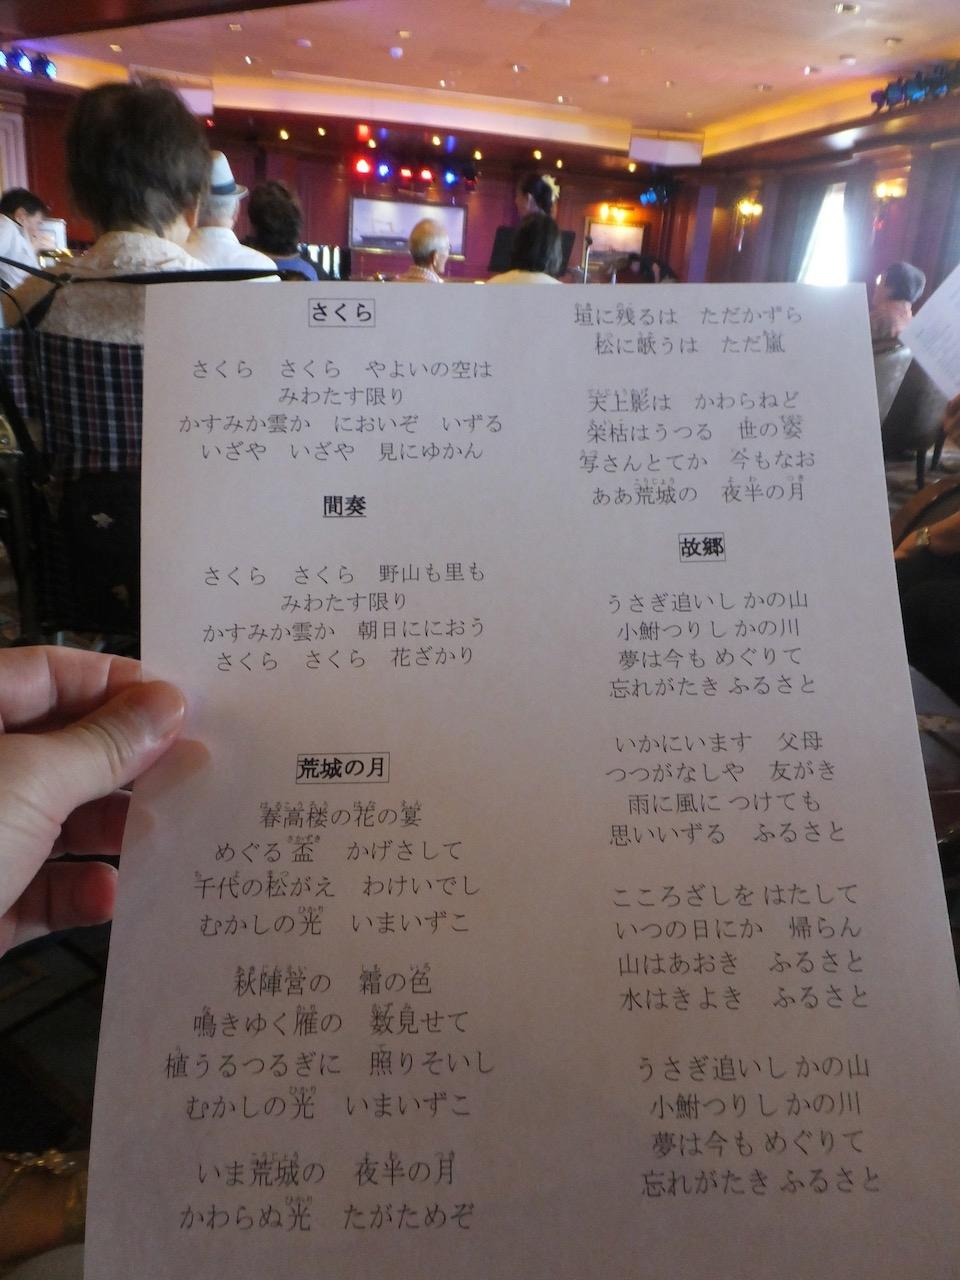 さくら
さくら　さくら　やよいの空は
みわたす限り
かすみか雲か　においぞ　いずる
いざや　いざや　見にゆかん
間奏
さくら　さくら　野山も里も
みわたす限り
かすみか雲か　朝日ににおう
さくら　さくら　花ざかり
荒城の月
春高楼の花の宴
めぐる盃　かげさして
千代の松がえ　わけいでし
むかしの光　いまいずこ
秋陣営の　霜の色
鳴きゆく雁の　数見せて
植うるつるぎに　照りそいし
むかしの光　いまいずこ
いま荒城の　夜半の月
かわらぬ光　たがためぞ
垣に残るは　ただかずら
松に歌うは　ただ嵐
天上影は　かわらねど
栄枯はうつる　世の姿
写さんとてか　今もなお
ああ荒城の　夜半の月
故郷
うさぎ追いし かの山
小鮒つりし かの川
夢は今も めぐりて
忘れがたき ふるさと
いかにいます　父母
つつがなしや　友がき
雨に風に つけても
思いいずる　ふるさと
こころざしを はたして
いつの日にか　帰らん
山はあおき　ふるさと
水はきよき　ふるさと
うさぎ追いし かの山
小鮒つりし かの川
夢は今も めぐりて
忘れがたき ふるさと